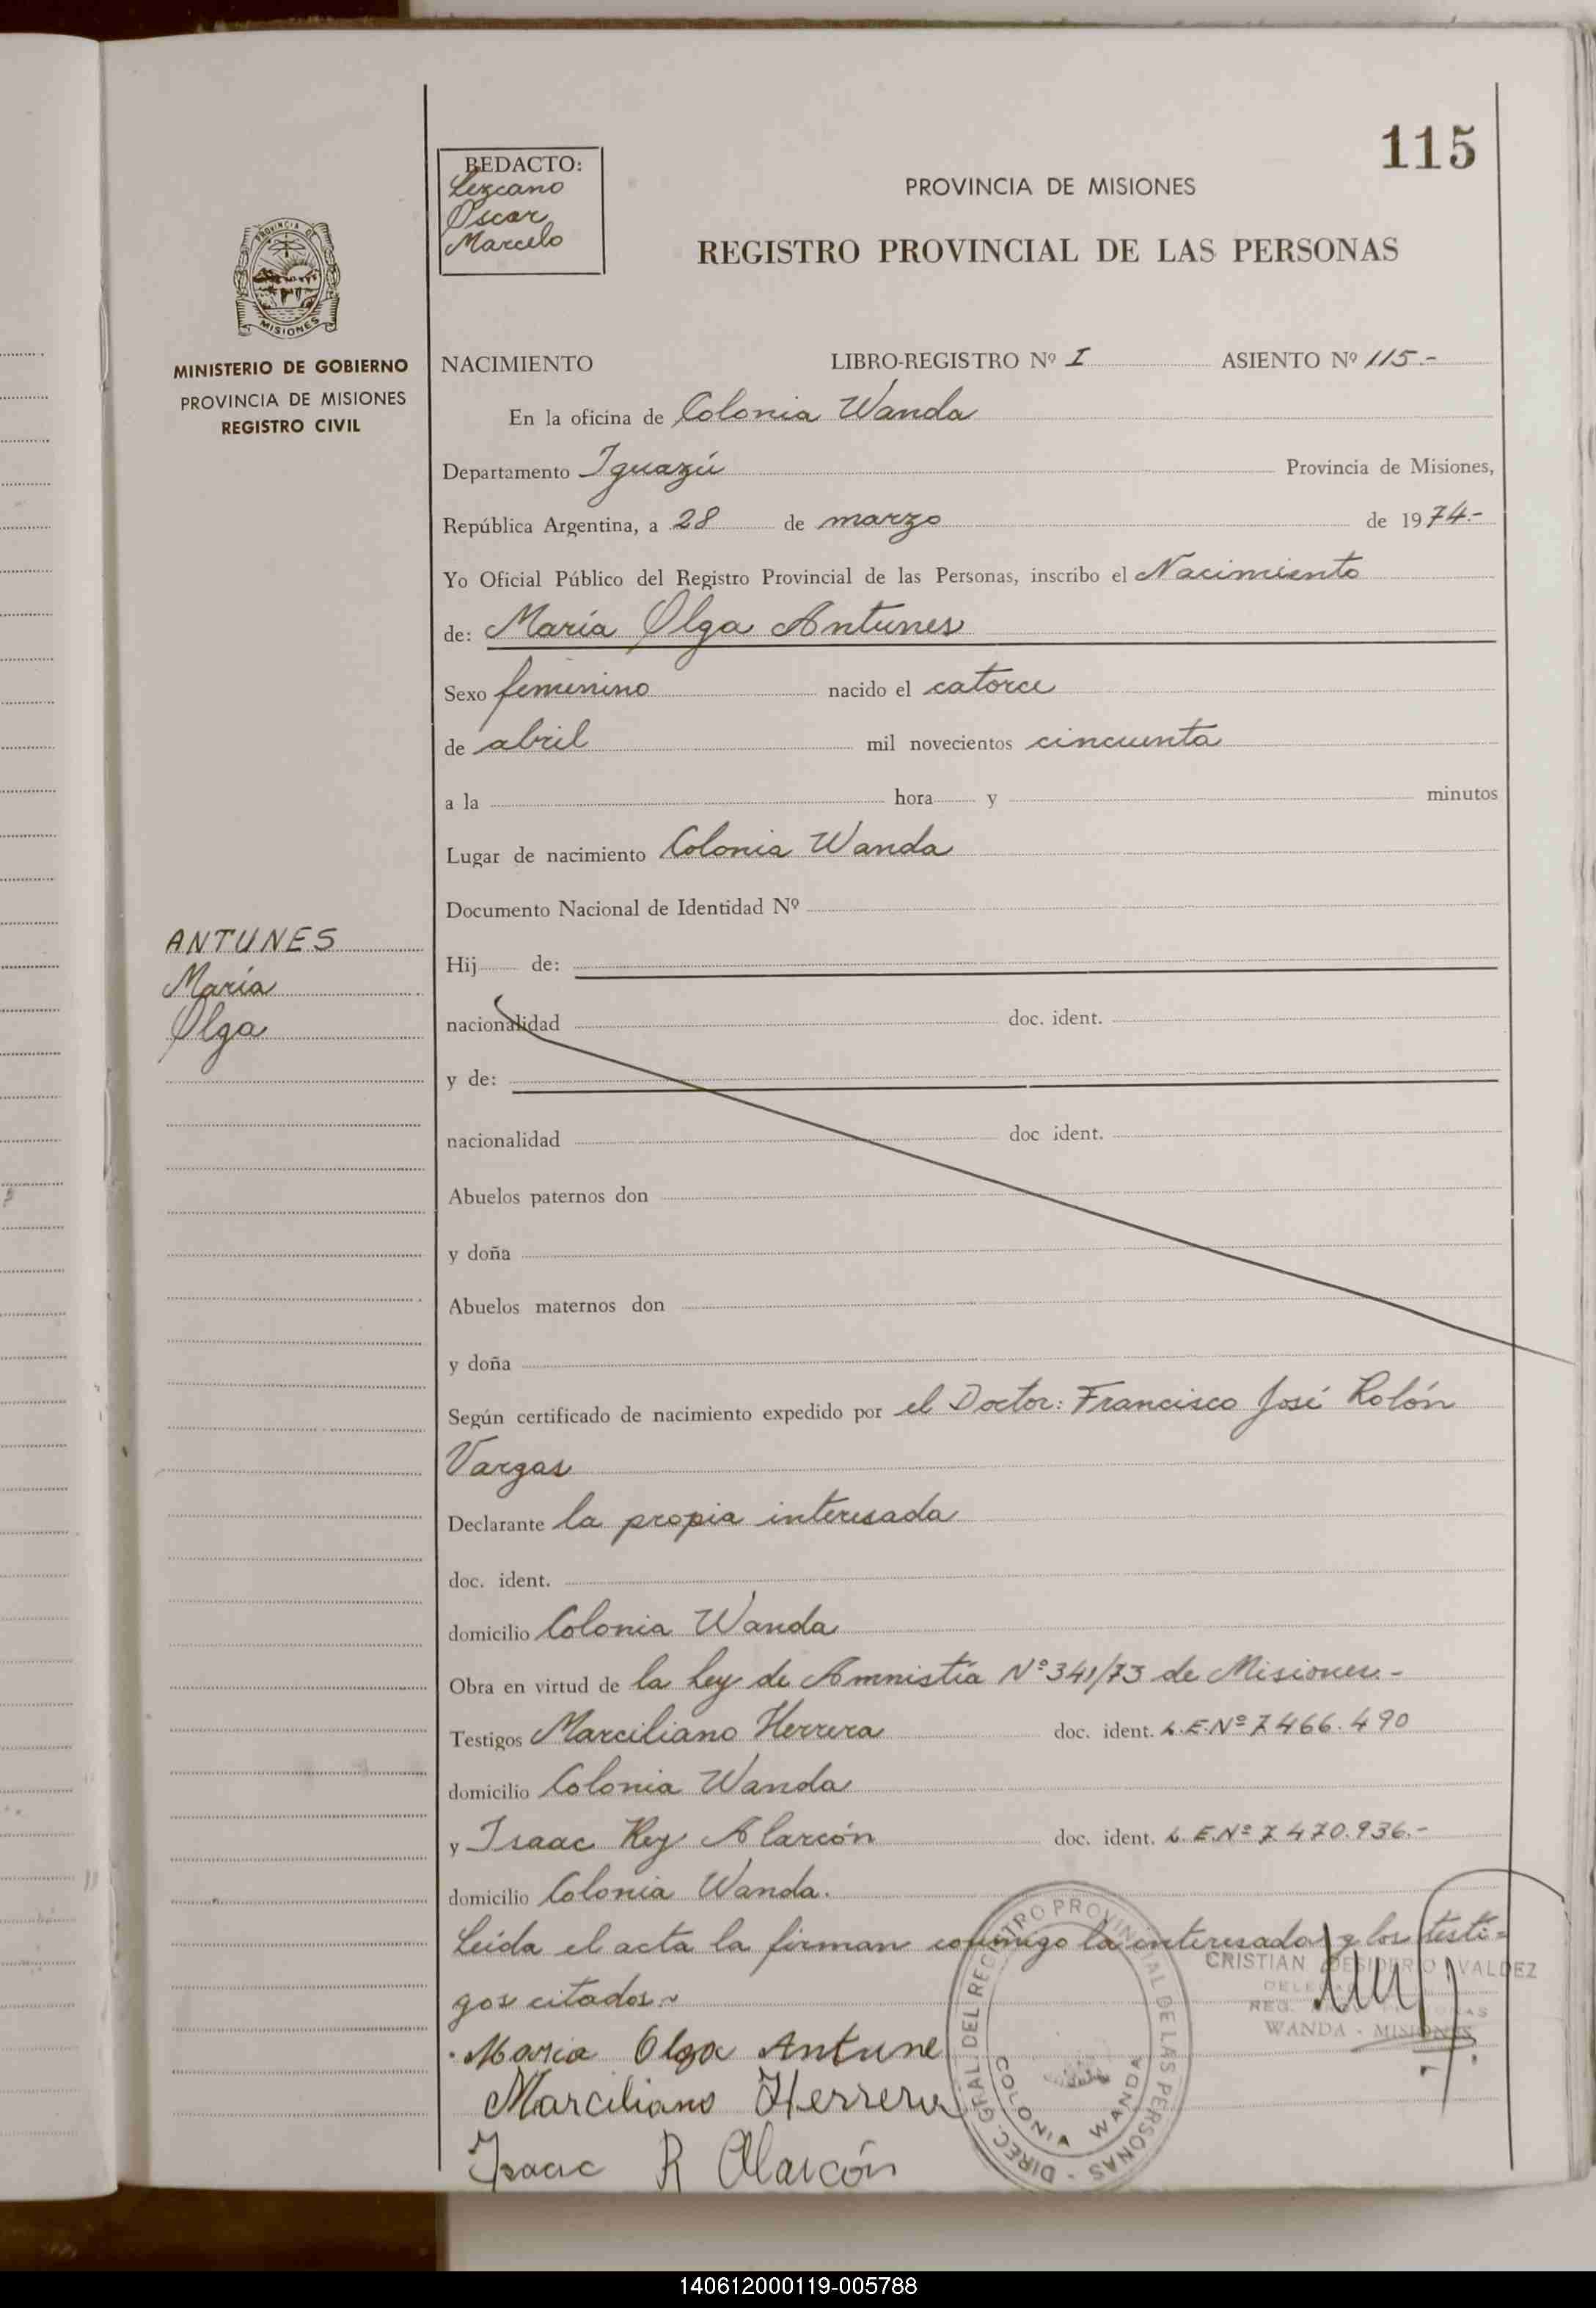 115
REDACTO:
Lezcano
Oscar
Marcelo
PROVINCIA DE MISIONES
REGISTRO PROVINCIAL DE LAS PERSONAS
PROVINCIA DE
MISIONES
MINISTERIO DE GOBIERNO
PROVINCIA DE MISIONES
REGISTRO CIVIL
NACIMIENTO LIBRO-REGISTRO Nº I ASIENTO Nº 115.-
En la oficina de Colonia Wanda
Departamento Iguazú Provincia de Misiones,
República Argentina, a 28 de marzo de 1974.-
Yo Oficial Público del Registro Provincial de las Personas, inscribo el Nacimiento
de: María Olga Antunes
Sexo femenino nacido el catorce
de abril mil novecientos cincuenta
a la hora y minutos
Lugar de nacimiento Colonia Wanda
Documento Nacional de Identidad Nº
ANTUNES
María
Olga
Hij de:
nacionalidad doc. ident.
y de:
nacionalidad doc ident.
Abuelos paternos don
y doña
Abuelos maternos don
y doña
Según certificado de nacimiento expedido por el Doctor: Francisco José Rolón
Vargas
Declarante la propia interesada
doc. ident.
domicilio Colonia Wanda
Obra en virtud de la Ley de Amnistía Nº 341/73 de Misiones.-
Testigos Marciliano Herrera doc. ident. L.E.Nº 7.466.490
domicilio Colonia Wanda
y Isaac Rey Alarcón doc. ident. L.E.Nº 7.470.936.-
domicilio Colonia Wanda.
Leída el acta la firman conmigo la interesada y los testi=
gos citados.~
Maria Olga Antune
Marciliano Herrera
Isaac R Alarcón
DIREC. GRAL. DEL REGISTRO PROVINCIAL DE LAS PERSONAS
COLONIA WANDA
CRISTIAN DESIDERIO VALDEZ
WANDA - MISIONES
140612000119-005788